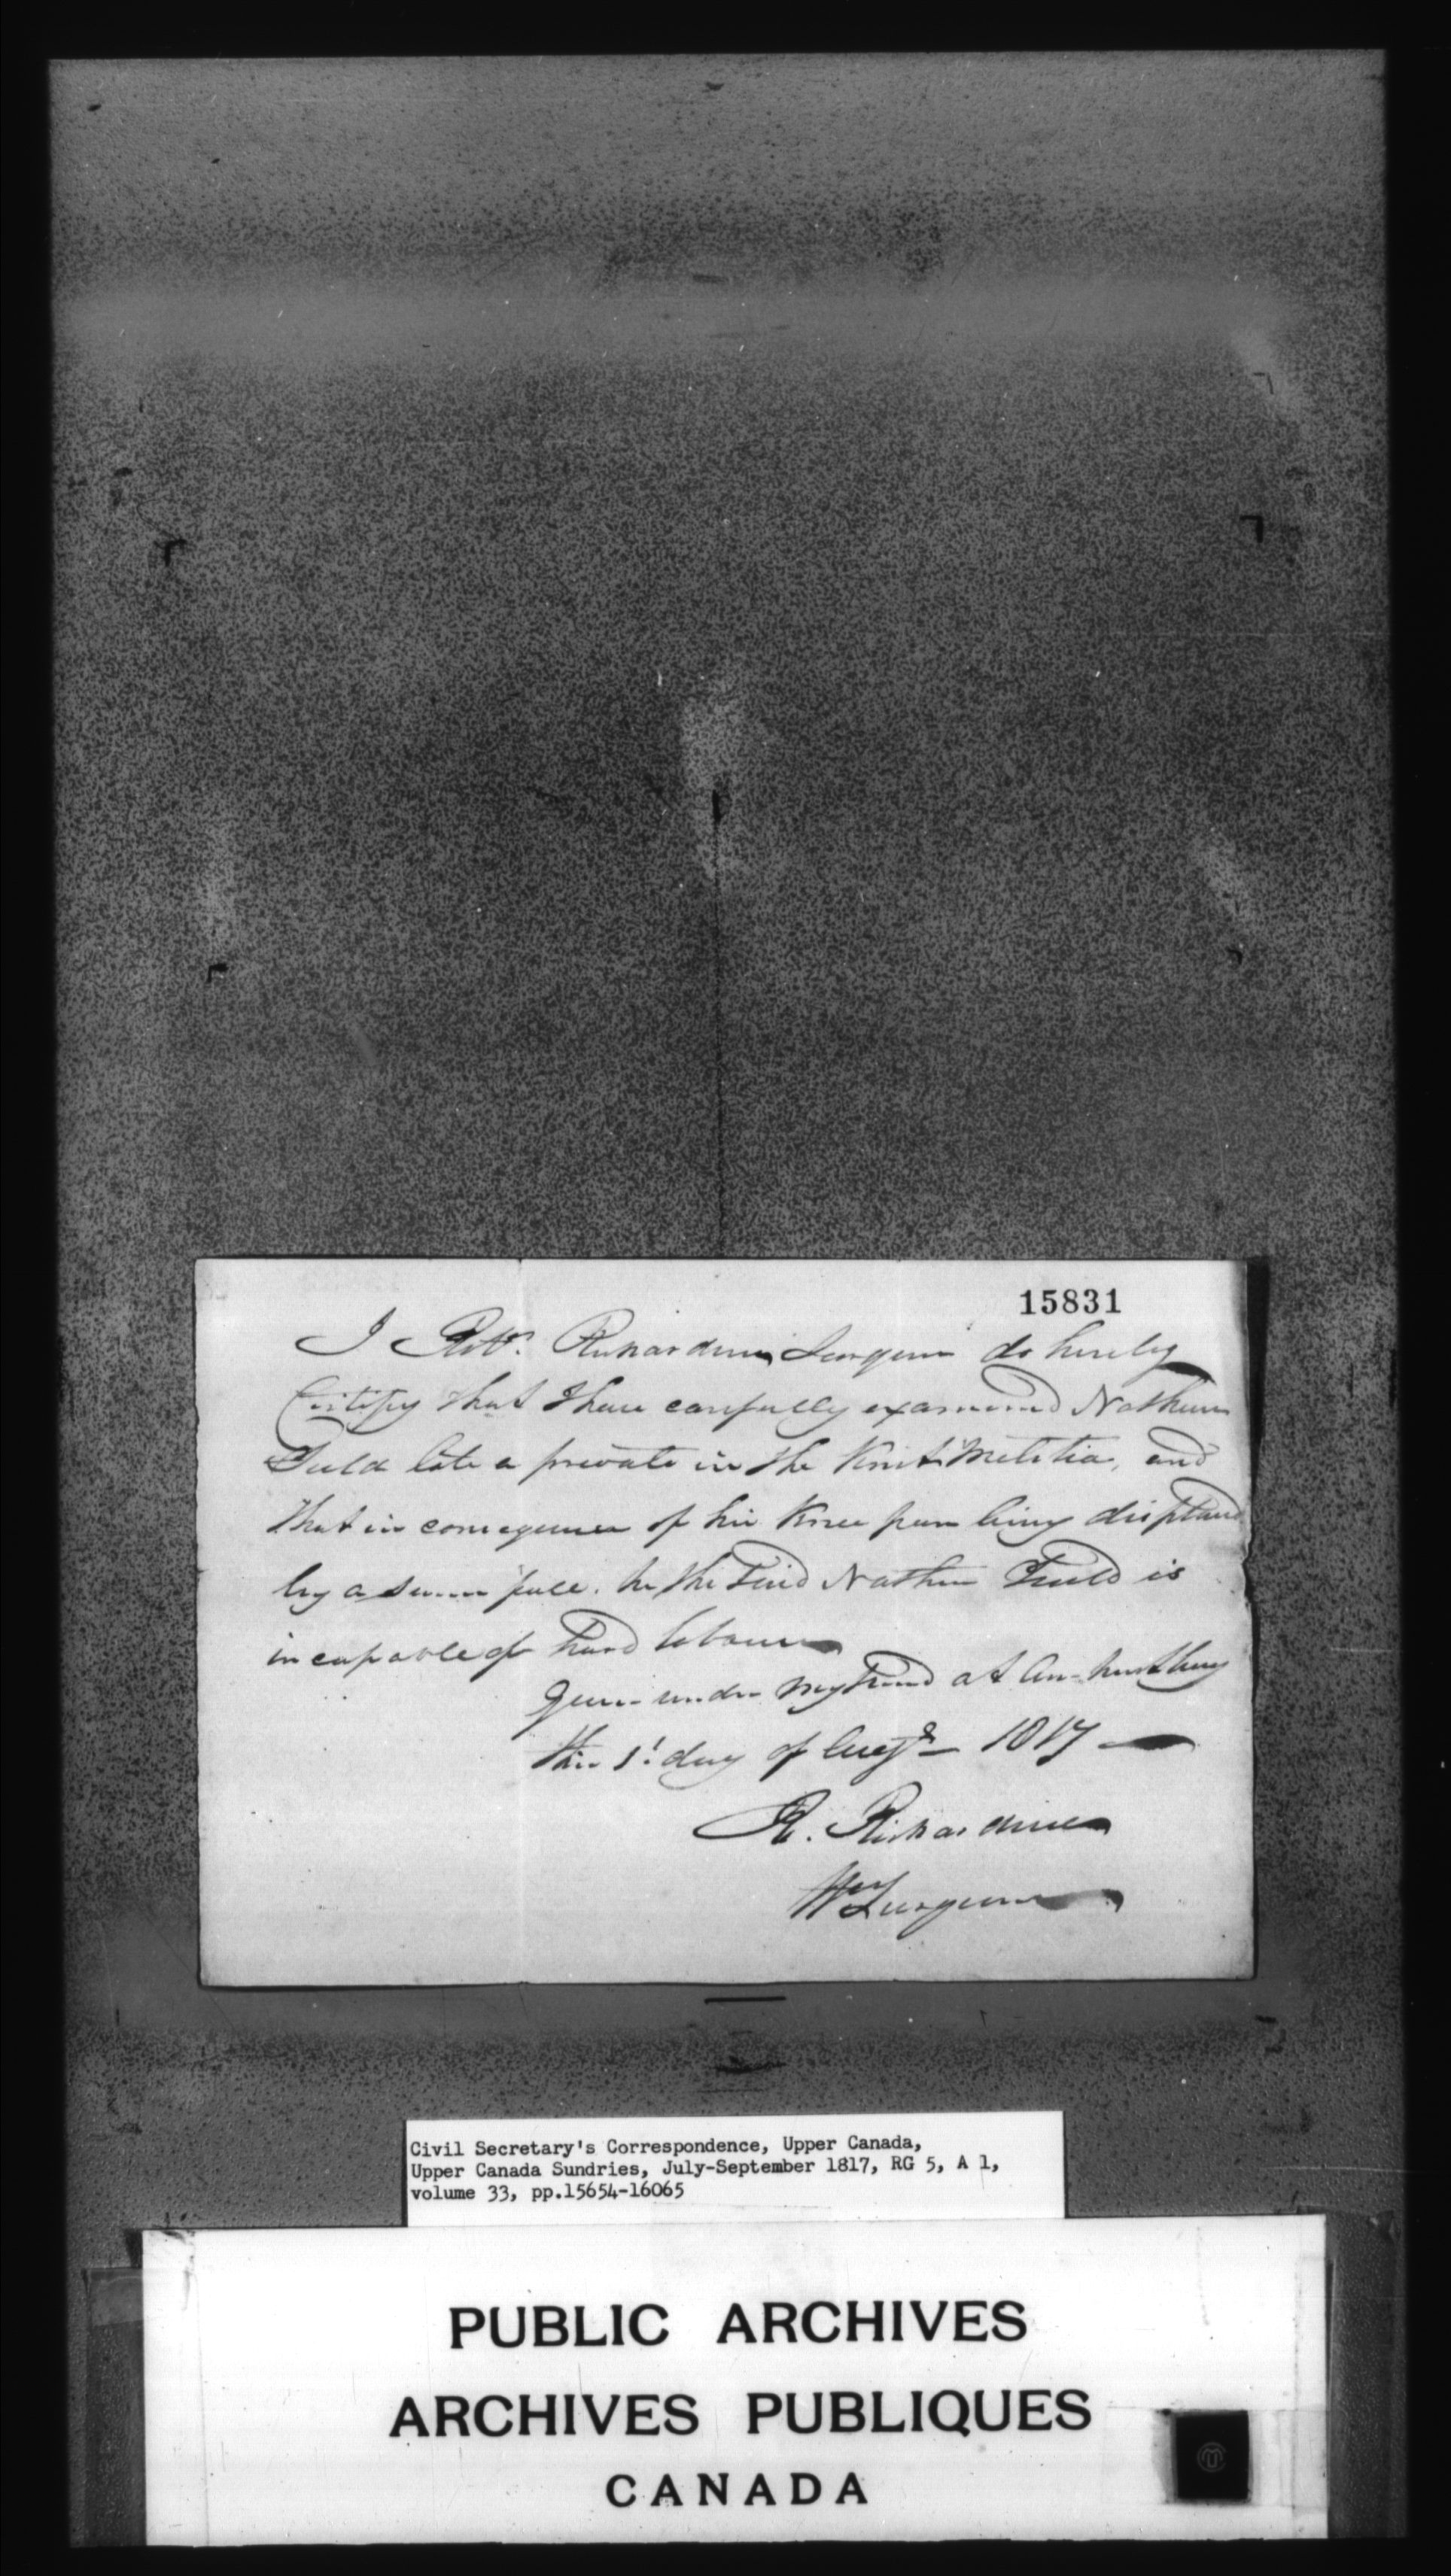 15831
I Robt. Richardson Surgeon do hereby
Certify that I have carefully examined Nathan
Field late a private in the Kent Militia, and
that in consequence of his Knee pan being displaced
by a severe fall. he the said Nathan Field is
incapable of hard labour
Given under my hand at Amherstburg
this 1t day of Augt 1817
R. Richardson
Surgeon
Civil Secretary's Correspondence, Upper Canada,
Upper Canada Sundries, July-September 1817, RG 5, A 1,
volume 33, pp.15654-16065
PUBLIC ARCHIVES
ARCHIVES PUBLIQUES
CANADA